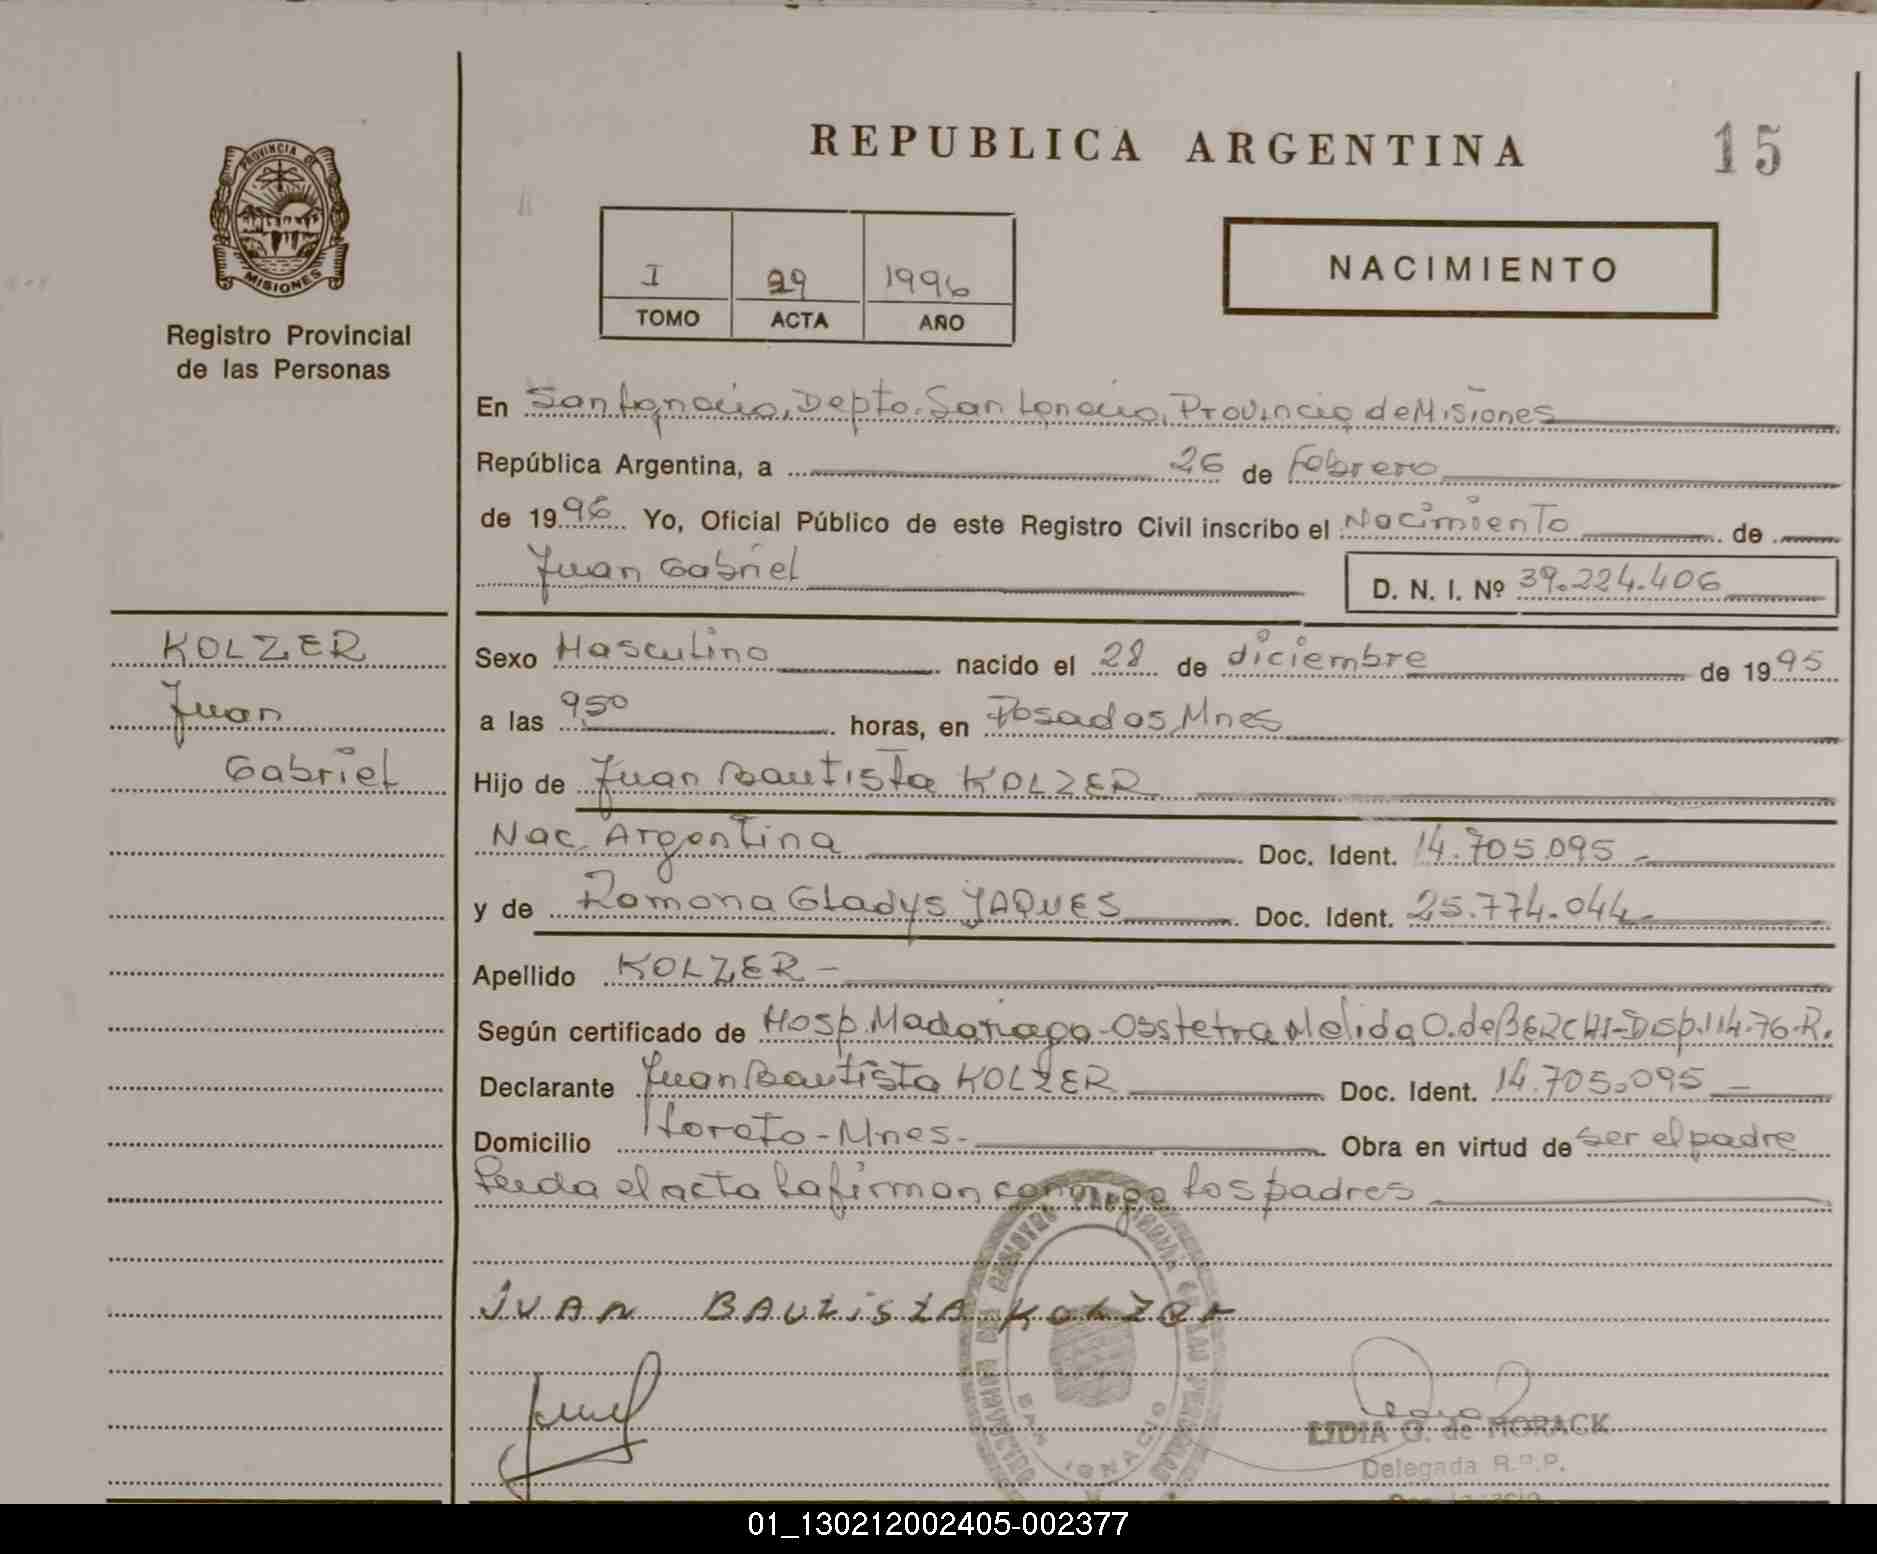 REPUBLICA ARGENTINA
15
PROVINCIA DE
MISIONES
Registro Provincial
de las Personas
I 29 1996
TOMO ACTA AÑO
NACIMIENTO
En San Ignacio, Depto. San Ignacio, Provincia de Misiones
República Argentina, a 26 de Febrero
de 1996 Yo, Oficial Público de este Registro Civil inscribo el Nacimiento de
Juan Gabriel D. N. I. Nº 39.224.406
KOLZER
Juan
Gabriel
Sexo Masculino nacido el 28 de diciembre de 1995
a las 950 horas, en Posadas, Mnes
Hijo de Juan Bautista KOLZER
Nac. Argentina Doc. Ident. 14.705.095 -
y de Ramona Gladys YAQUES Doc. Ident. 25.774.044-
Apellido KOLZER -
Según certificado de Hosp. Madariaga - Obstetra Nelida O. de BERCHI - Disp. 114-76-R.
Declarante Juan Bautista KOLZER Doc. Ident. 14.705.095 -
Domicilio Loreto - Mnes. - Obra en virtud de ser el padre
Leida el acta la firman conmigo los padres
JUAN BAUTISTA KOLZER
REGISTRO PROVINCIAL DE LAS PERSONAS
SAN IGNACIO
LIDIA G. de MORACK
Delegada R.P.P.
01_130212002405-002377